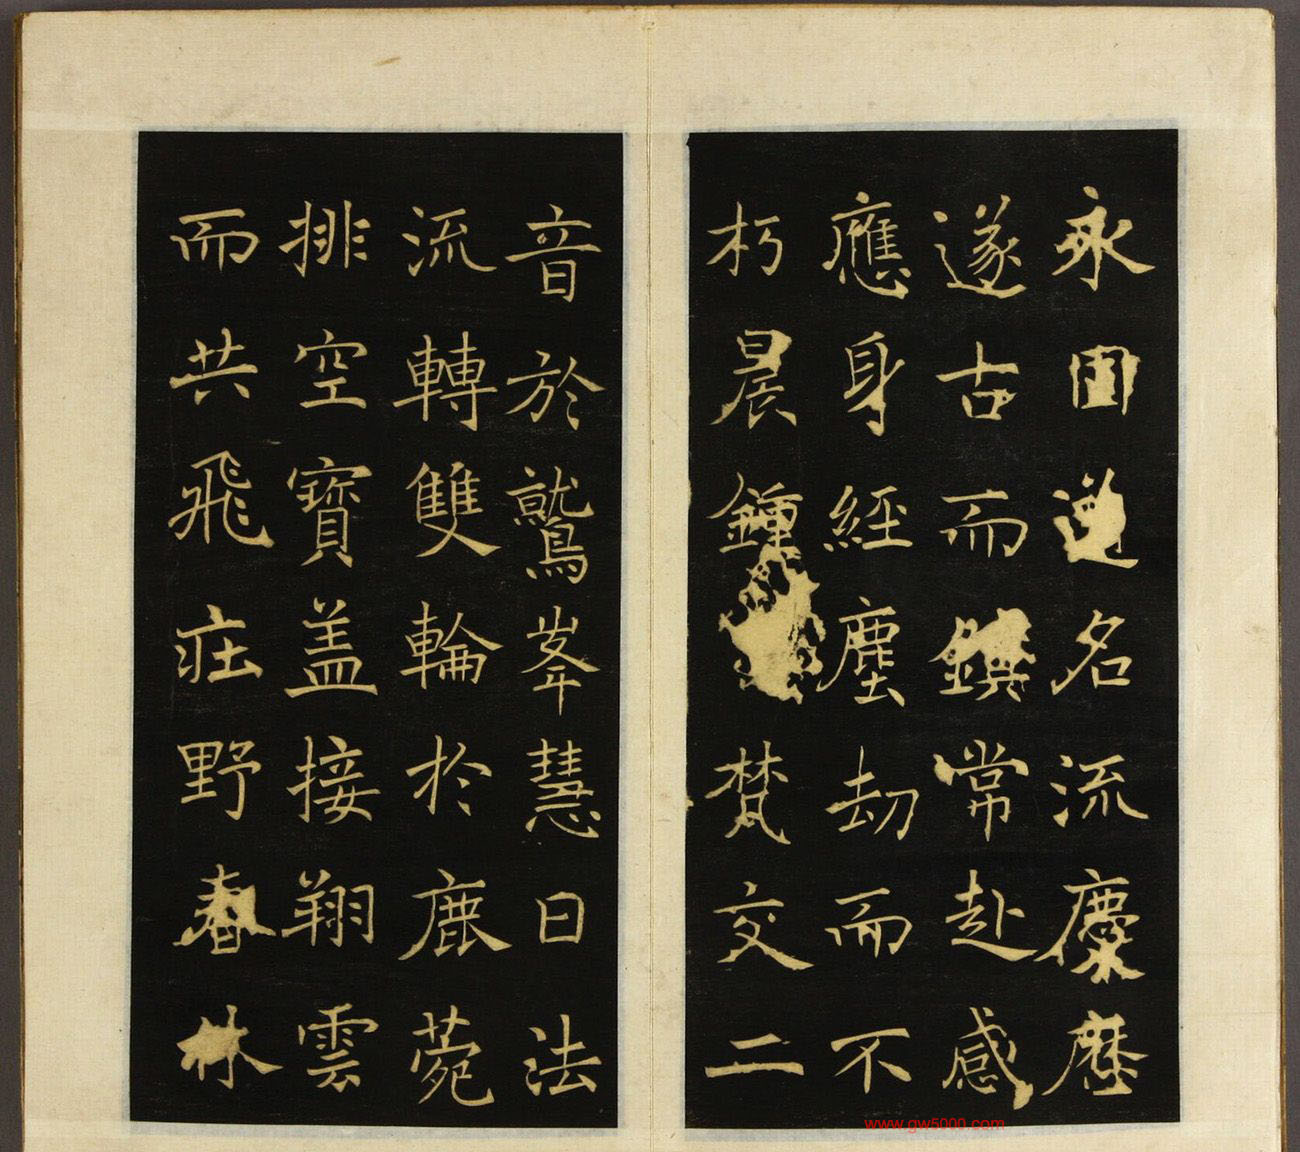 永固道名流慶歷
遂古而鎮常赴感
應身經塵劫而不
朽晨鍾梵交二
音於鷲峯慧日法
流轉雙輪於鹿菀
排空寶盖接翔雲
而共飛庄野春林
www.gw5000.com